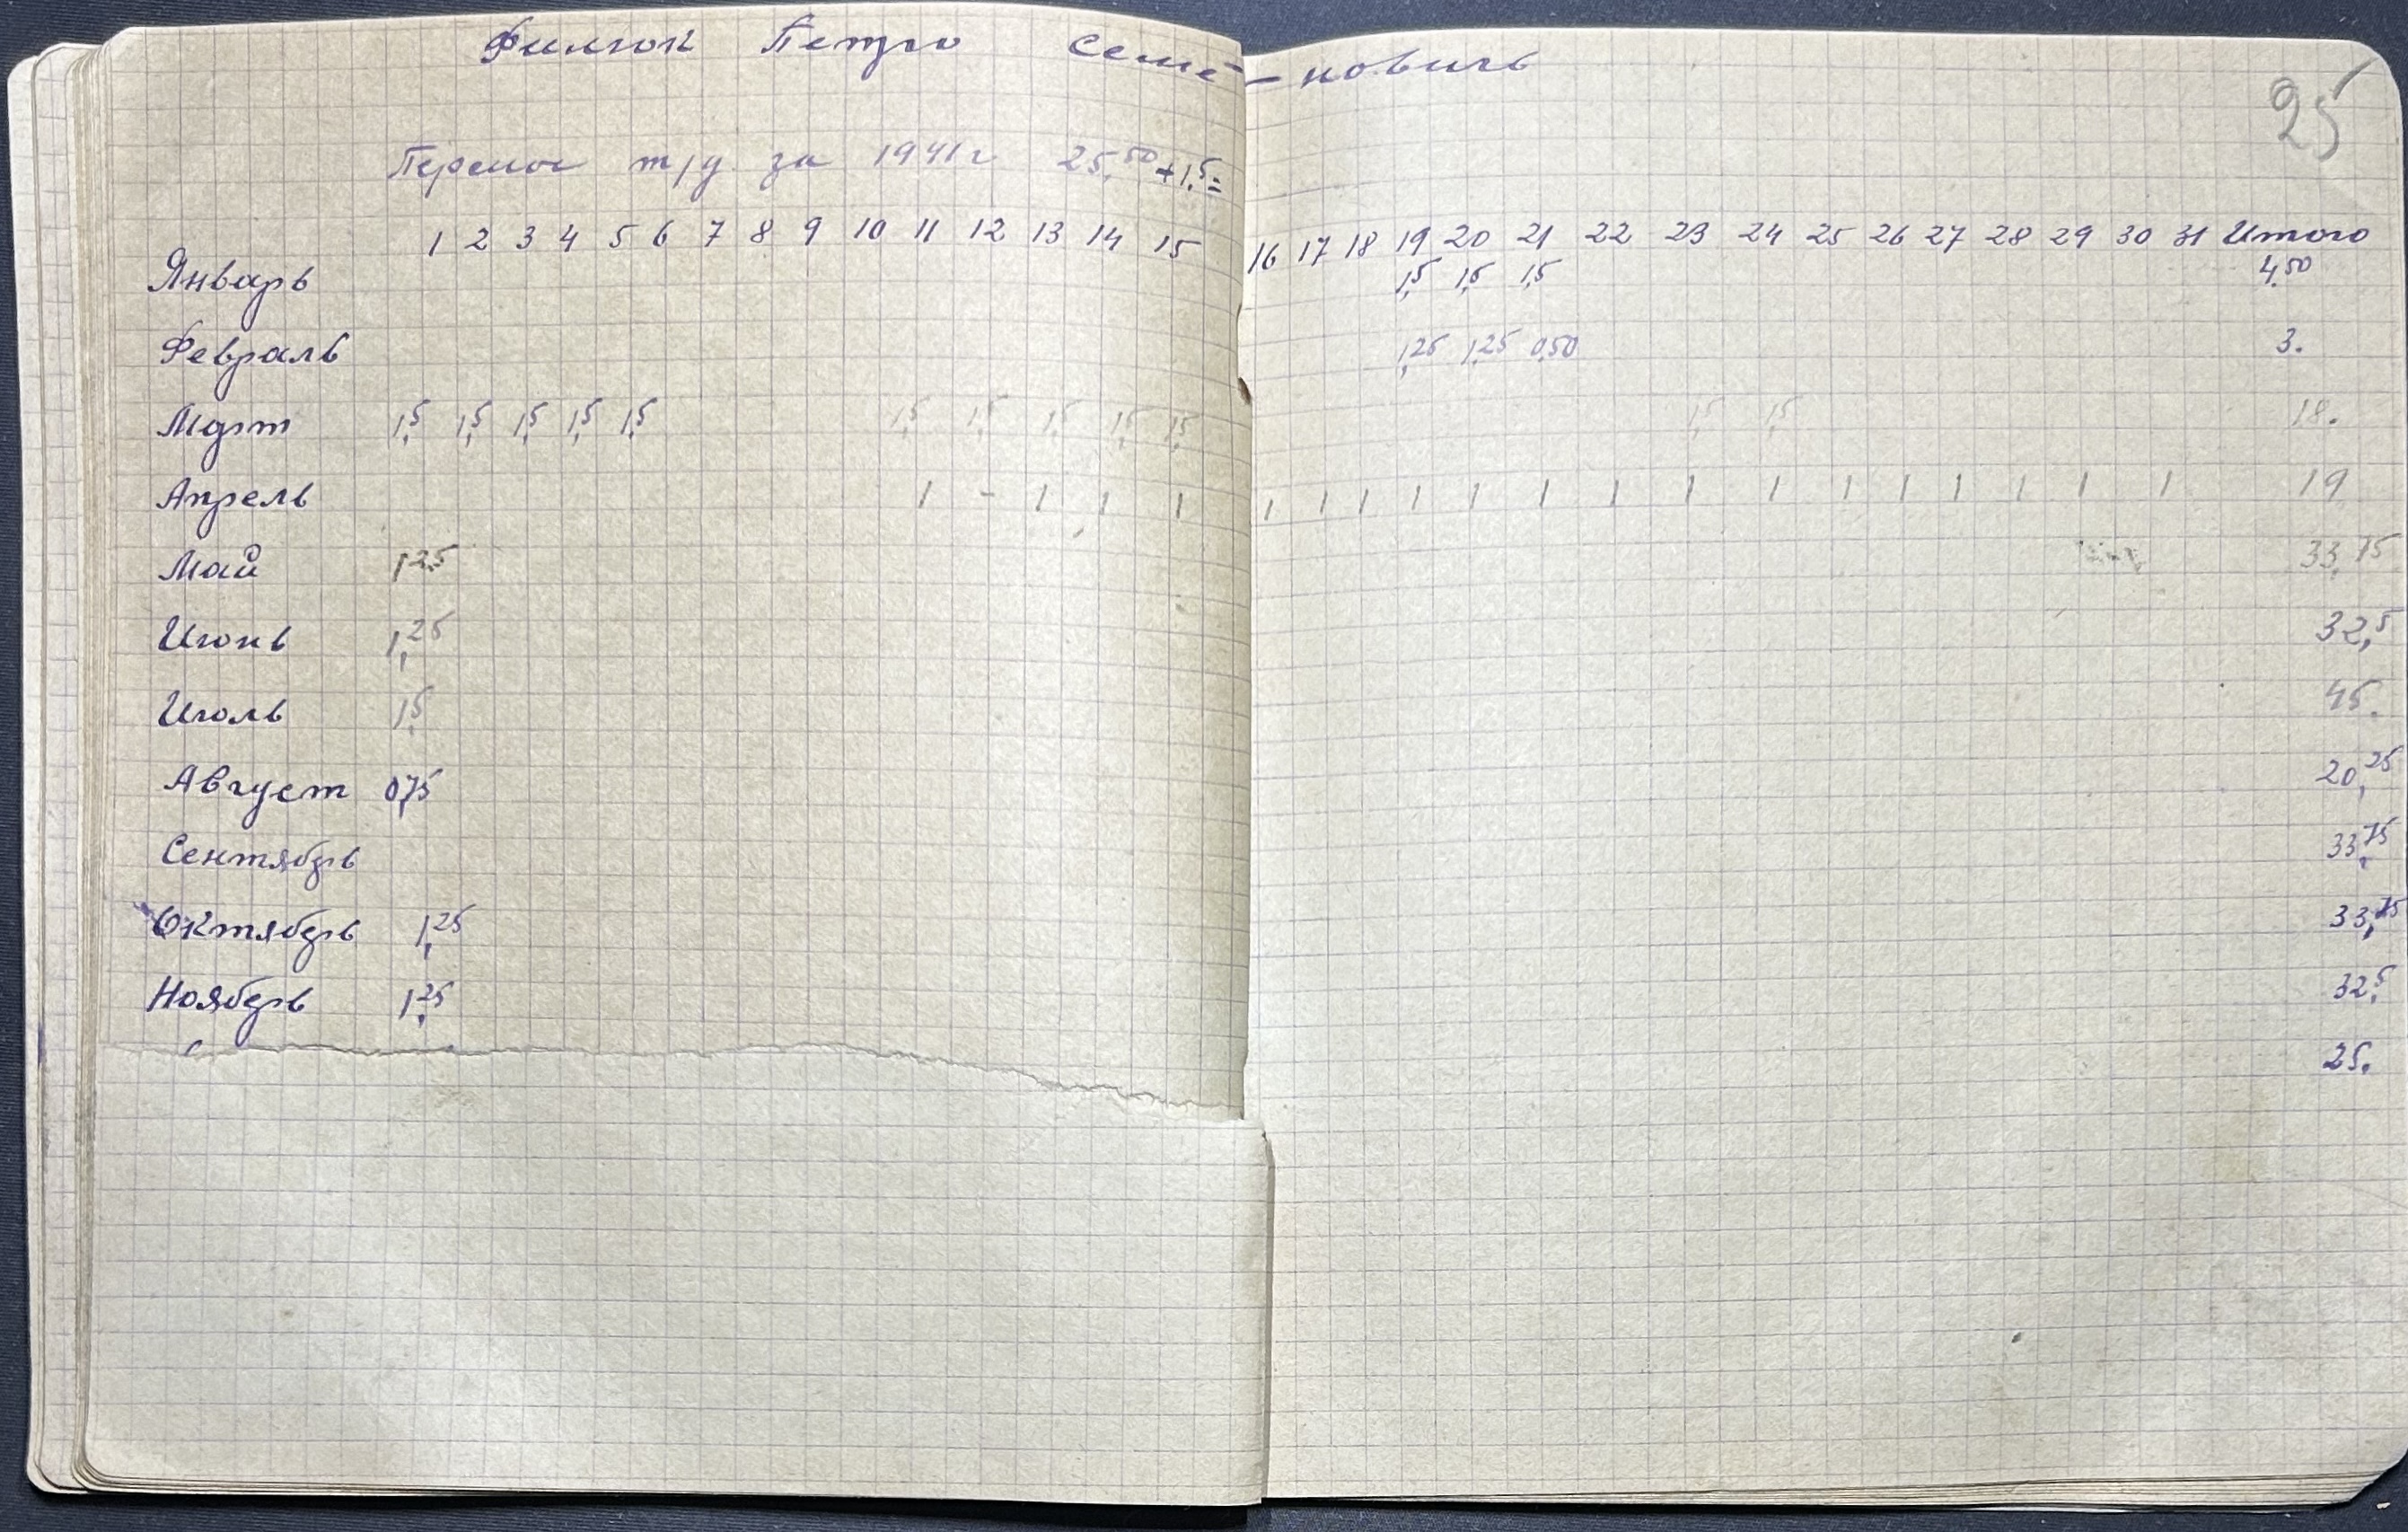 Филюк Петро Семе-новичь
25
Перенос т/у за 1941 г 25,50 + 1,5 =
1 2 3 4 5 6 7 8 9 10 11 12 13 14 15 16 17 18 19 20 21 22 23 24 25 26 27 28 29 30 31 Итого
Январь 1,5 1,5 1,5 4,50
Февраль 1,25 1,25 0,50 3.
Март 1,5 1,5 1,5 1,5 1,5 1,5 1,5 1,5 1,5 1,5 1,5 1,5 18.
Апрель 1 - 1 1 1 1 1 1 1 1 1 1 1 1 1 1 1 1 1 1 19
Май 1,25 33,75
Июнь 1,25 32,5
Июль 1,5 45.
Август 0,75 20,25
Сентябрь 33,75
Октябрь 1,25 33,75
Ноябрь 1,25 32,5
25.